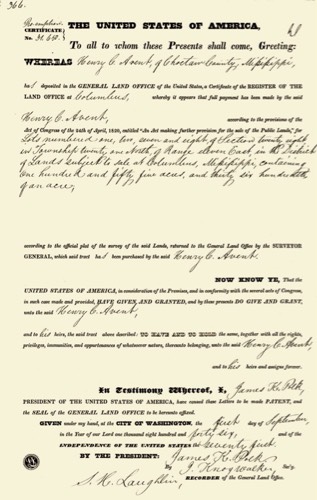 366.
Pre-emption
CERTIFICATE
No.
THE UNITED STATES OF AMERICA,
To all to whom these Presents shall come, Greeting:
WHEREAS Henry C. Avent, of Choctaw County, Mississippi,
has deposited in the GENERAL LAND OFFICE of the United States, a Certificate of the REGISTER OF THE
LAND OFFICE at Columbus, whereby it appears that full payment has been made by the said
Henry C. Avent, according to the provisions of the
Act of Congress of the 24th of April, 1820, entitled "An Act making further provision for the sale of the Public Lands," for
Lots numbered one, two, seven and eight, of Section twenty eight
in Township twenty one North, of Range eleven East, in the District
of Lands subject to sale at Columbus, Mississippi, containing
one hundred and fifty five acres, and thirty six hundredths
of an acre,
according to the official plat of the survey of the said Lands, returned to the General Land Office by the SURVEYOR
GENERAL, which said tract has been purchased by the said Henry C. Avent
NOW KNOW YE, That the
UNITED STATES OF AMERICA, in consideration of the Premises, and in conformity with the several acts of Congress,
in such case made and provided, HAVE GIVEN AND GRANTED, and by these presents DO GIVE AND GRANT,
unto the said Henry C. Avent,
and to his heirs, the said tract above described: TO HAVE AND TO HOLD the same, together with all the rights,
privileges, immunities, and appurtenances of whatsoever nature, thereunto belonging, unto the said Henry C. Avent,
and to his heirs and assigns forever.
In Testimony Whereof, I, James K. Polk
PRESIDENT OF THE UNITED STATES OF AMERICA, have caused these Letters to be made PATENT, and
the SEAL of the GENERAL LAND OFFICE to be hereunto affixed.
GIVEN under my hand, at the CITY OF WASHINGTON, the first day of September,
in the Year of our Lord one thousand eight hundred and forty six, and of the
INDEPENDENCE OF THE UNITED STATES the seventy first.
BY THE PRESIDENT: James K. Polk
By J. Knox Walker, Sec'y.
S. H. Laughlin, RECORDER of the General Land Office.